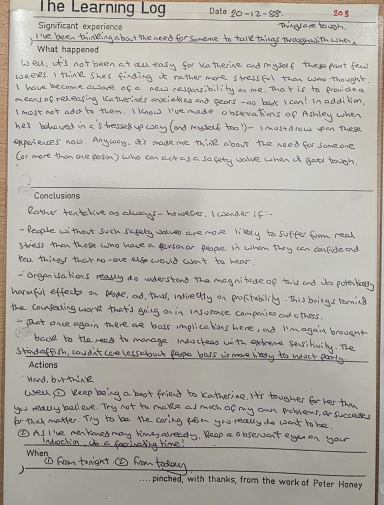 The Learning Log
Date 20-12-88.
Things are tough.
203
Significant experience
I've been thinking about the need for someone to talk things through with when
What happened
Well, it's not been at all easy for Katherine and myself these past few
weeks. I think she's finding it rather more stressful than was thought.
I have become aware of a new responsibility on me. That is to provide a
means of releasing Katherine's anxieties and fears - as best I can! In addition,
I must not add to them. I know I've made observations of Ashley when
he's behaved in a stressed up way (and myself too!) - I must draw upon these
experiences now. Anyway, it's made me think about the need for someone
(or more than one person) who can act as a safety valve when it gets tough.
Conclusions
Rather tentative as always - however, I wonder if:-
- People without such safety valves are more likely to suffer from real
stress than those who have a person or people in whom they can confide and
tell things that no-one else would want to hear.
- Organisations really do understand the magnitude of this and its potentially
harmful effects on people, and, thus, indirectly on profitability. This brings to mind
the counselling work that's going on in insurance companies and others.
- That once again there are boss implications here, and I'm again brought
back to the need to manage inductees with extreme sensitivity. The
standoffish, couldn't care less about people boss is more likely to induct poorly.
Actions
Hard, but think
Well ① Keep being a best friend to Katherine. It's tougher for her than
you really believe. Try not to make as much of my own problems, or successes
for that matter. Try to be the caring person you really do want to be.
② As I've mentioned many times already, keep a observant eye on your
induction, it's a fascinating time!
When
① From tonight ② From today
....pinched, with thanks, from the work of Peter Honey